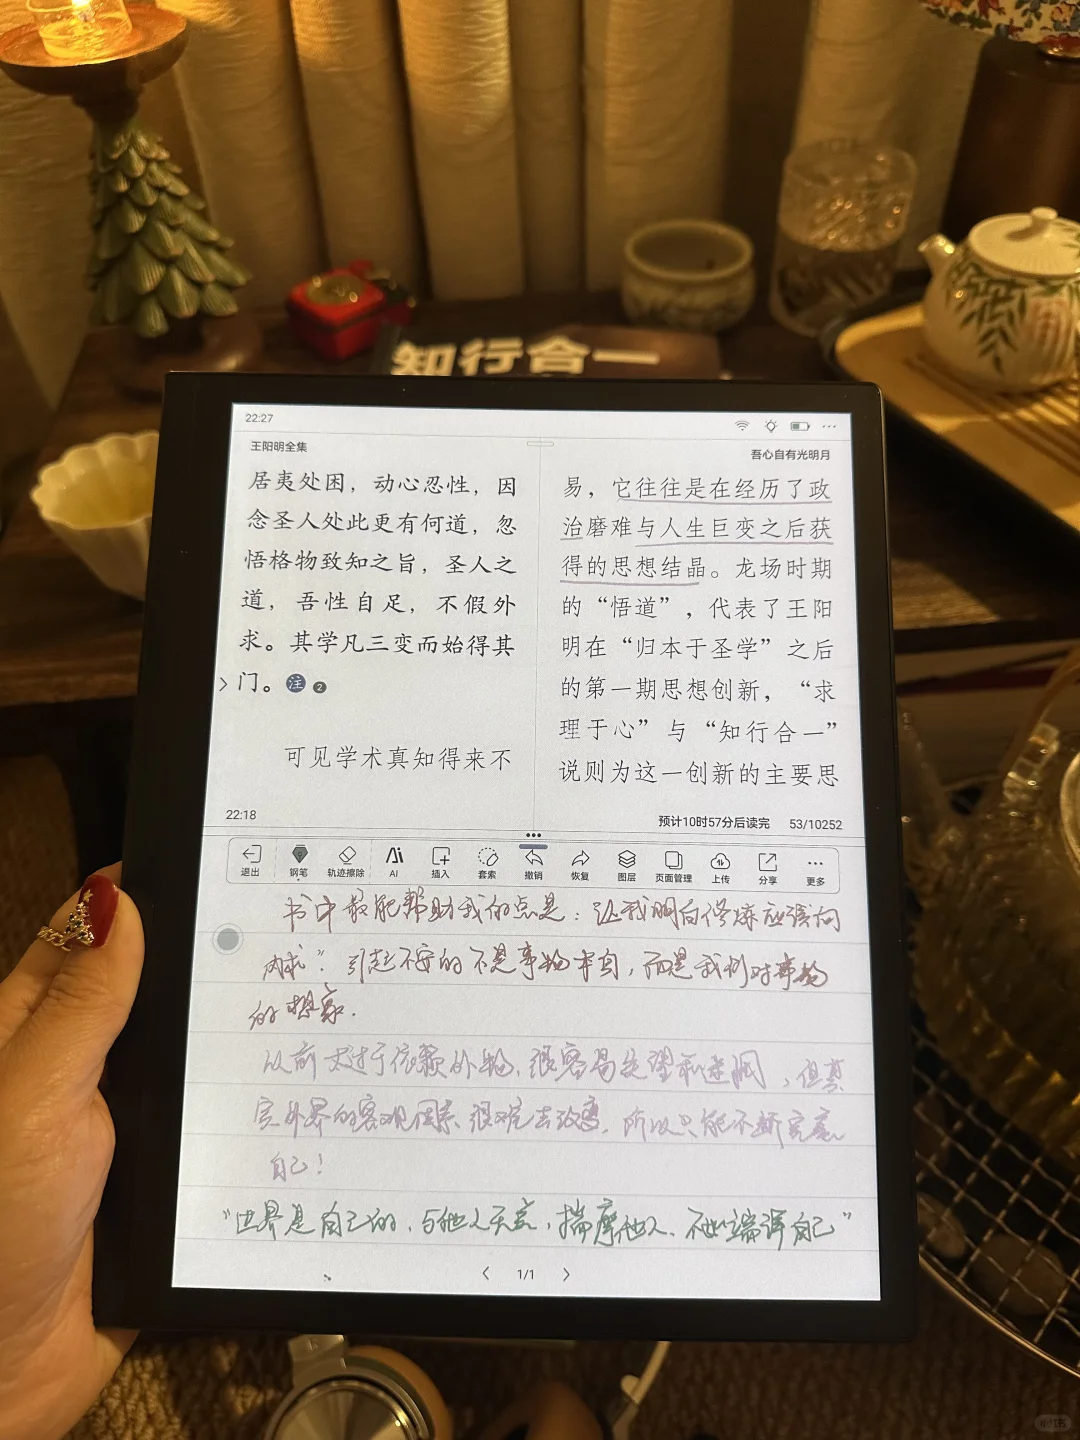 知行合一
22:27
王阳明全集
吾心自有光明月
居夷处困，动心忍性，因
念圣人处此更有何道，忽
悟格物致知之旨，圣人之
道，吾性自足，不假外
求。其学凡三变而始得其
门。注 2
可见学术真知得来不
22:18
易，它往往是在经历了政
治磨难与人生巨变之后获
得的思想结晶。龙场时期
的“悟道”，代表了王阳
明在“归本于圣学”之后
的第一期思想创新，“求
理于心”与“知行合一”
说则为这一创新的主要思
预计10时57分后读完 53/10252
退出 钢笔 轨迹擦除 AI 插入 套索 撤销 恢复 图层 页面管理 上传 分享 更多
书中最能帮助我的点是：让我明白修炼应该向
内求”。引起不安的不是事物本身，而是我们对事物
的想象.
以前太过于依赖外物、很容易失望和迷惘，但其
实外界的客观因素、很难去改变，所以只能不断完善
自己！
“世界是自己的、与他人无意，揣摩他人、不如端详自己”
1/1
小红书